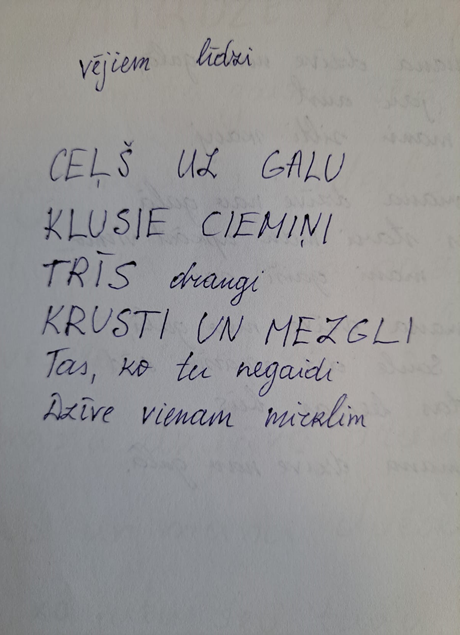 vējiem līdzi
CEĻŠ UZ GALU
KLUSIE CIEMIŅI
TRĪS draugi
KRUSTI UN MEZGLI
Tas, ko tu negaidi
Dzīve vienam mirklim